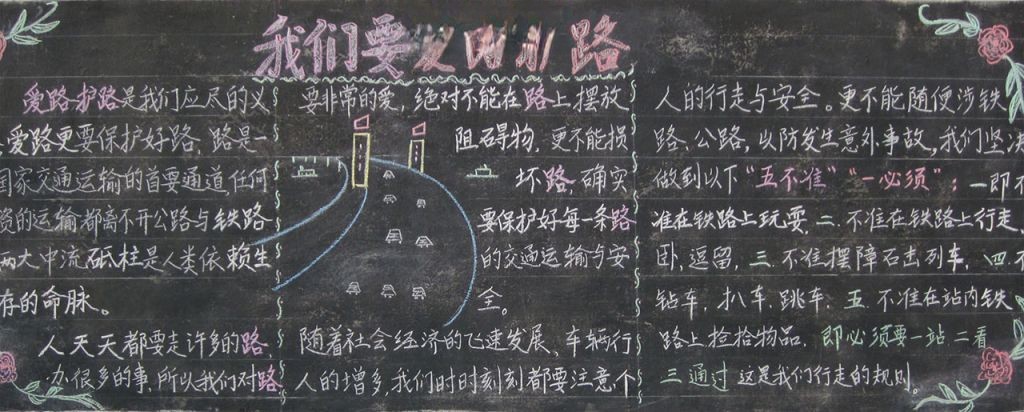 我们要爱路护路
爱路护路是我们应尽的义
爱路更要保护好路，路是一
国家交通运输的首要通道任何
的运输都离不开公路与铁路
两大中流砥柱是人类依赖生
存的命脉。
人天天都要走许多的路，
办很多的事，所以我们对路
要非常的爱，绝对不能在路上摆放
阻碍物，更不能损
坏路，确实
要保护好每一条路
的交通运输与安
全。
随着社会经济的飞速发展，车辆行
人的增多，我们时时刻刻都要注意个
人的行走与安全。更不能随便涉铁
路、公路，以防发生意外事故，我们坚决
做到以下“五不准”“一必须”：一即不
准在铁路上玩耍，二.不准在铁路上行走，
卧，逗留，三.不准摆障石击列车，四.不
钻车，扒车，跳车 五.不准在站内铁
路上捡拾物品，即必须要一站二看
三通过 这是我们行走的规则。